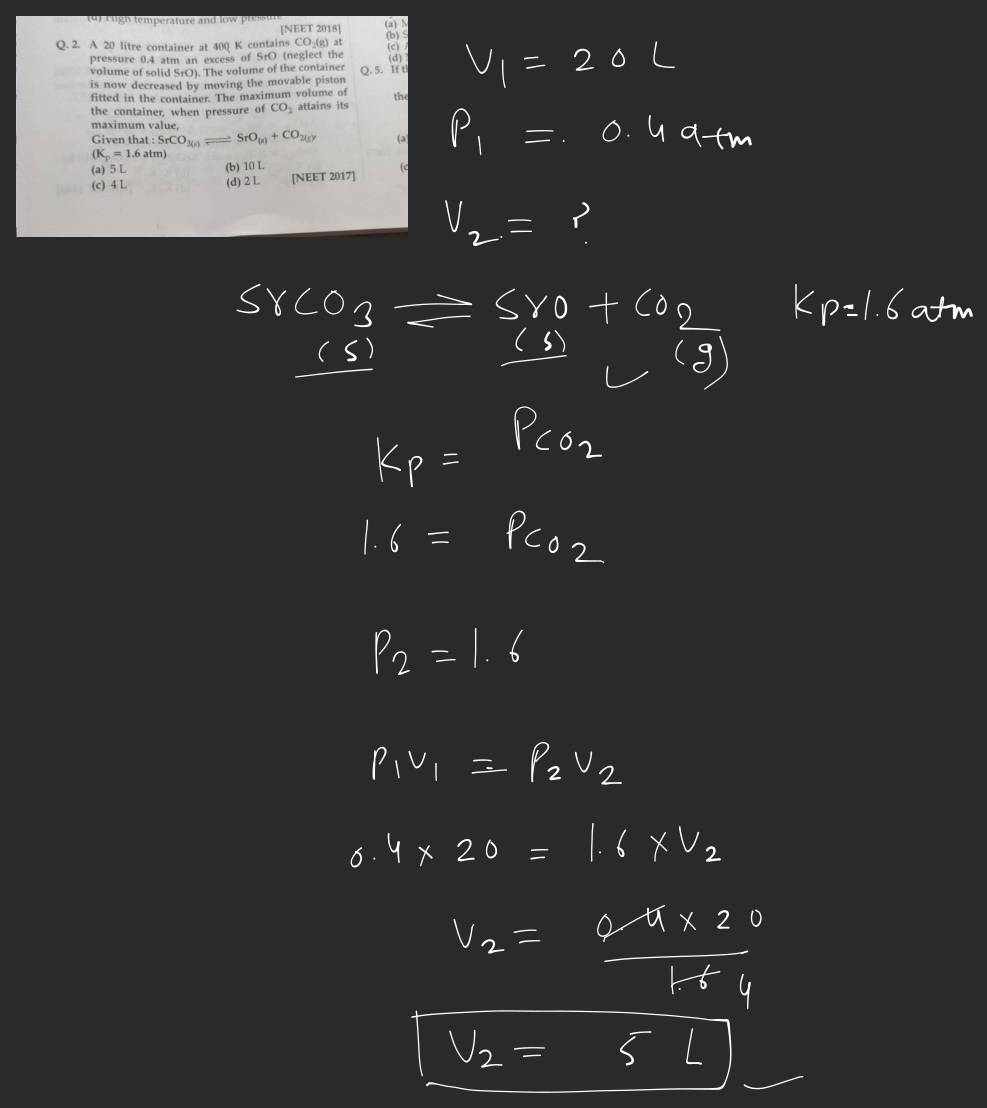 (d) High temperature and low pressure
[NEET 2018]
Q. 2. A 20 litre container at 400 K contains CO₂(g) at
pressure 0.4 atm an excess of SrO (neglect the
volume of solid SrO). The volume of the container
is now decreased by moving the movable piston
fitted in the container. The maximum volume of
the container, when pressure of CO₂ attains its
maximum value,
Given that : SrCO₃(s) ⇌ SrO(s) + CO₂(g),
(Kₚ = 1.6 atm)
(a) 5 L (b) 10 L
(c) 4 L (d) 2 L [NEET 2017]
(a)
(b)
(c)
(d)
Q. 5. If
the
(a)
V₁ = 20 L
P₁ = 0.4 atm
V₂ = ?
SrCO₃ ⇌ SrO + CO₂ Kp=1.6 atm
(s) (s) (g)
Kp = PCO₂
1.6 = PCO₂
P₂ = 1.6
P₁V₁ = P₂V₂
0.4 × 20 = 1.6 × V₂
V₂ = 0.4 × 20
1.6 4
V₂ = 5 L